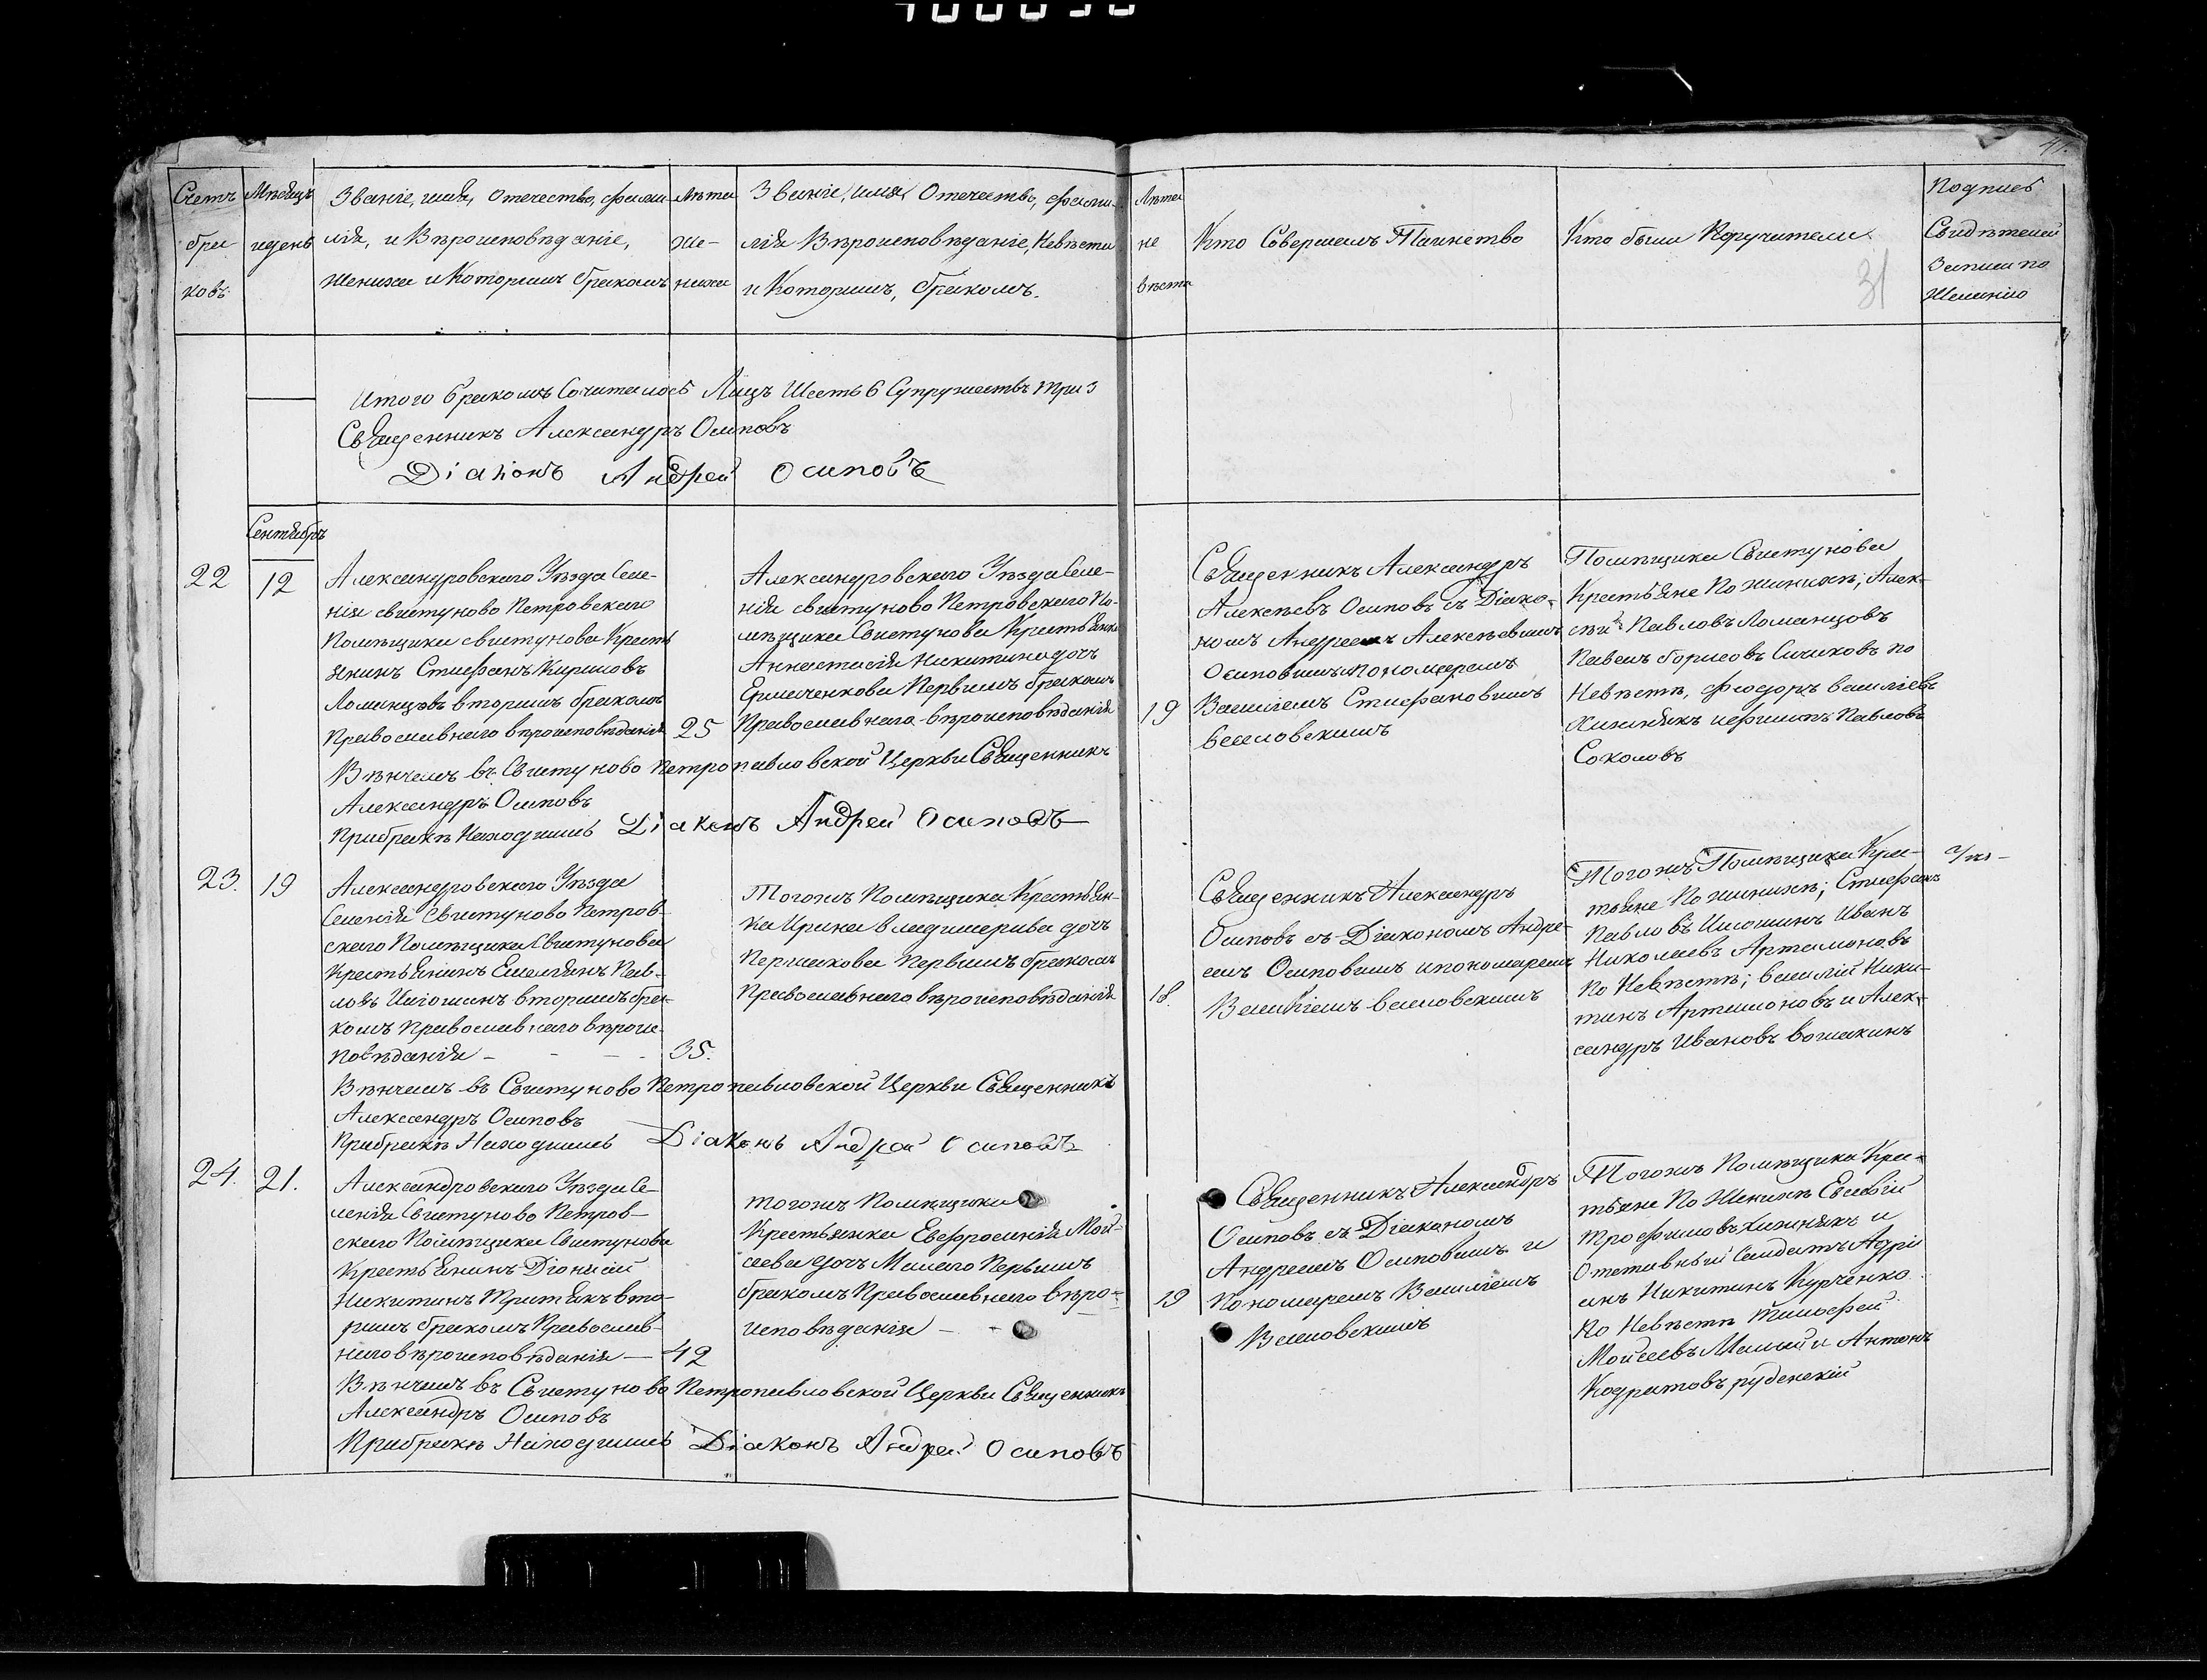 Счетъ
бра
ковъ
Мѣсяцъ
идень
Званіе, имя, Отечество, фами
лія, и Вѣроисповѣданіе,
Жениха и Которымъ бракомъ
Лѣта
же-
ниха
Званіе, имя, Отечество, фами-
лія Вѣроисповѣданіе, Невѣсты
и Которымъ, бракомъ.
Лѣта
не
вѣсты
Кто Совершалъ Таинство
Кто были Поручители
Подпись
Свидѣтелей
Записи по
Желанію
31
Итого бракомъ Сочиталось Лицъ Шесть 6 Супружествъ три 3
Священникъ Александръ Осиповъ
Діаконъ Андрей Осиповъ
Сентябрь
22
12
Александровскаго Уѣзда Селе-
нія свистуново Петровскаго
Помѣщика свистунова Кресть
янинъ Стефанъ Кириловъ
Ломанцовъ вторимъ бракомъ
Православнаго вѣроисповѣданія
25
Александровскаго Уѣзда Селе-
нія свистуново Петровскаго По-
мѣщика Свистунова Крестьянка
Анастасія Никитина дочь
Ермаченкова Первимъ бракомъ
Православнаго вѣроисповѣданія
19
Священникъ Александръ
Алексѣевъ Осиповъ съ Діако-
номъ Андреемъ Алексѣевимъ
Осиповимъ пономаремъ
Василіемъ Стефановимъ
Веселовскимъ
Помѣщика Свистунова
Крестьяне По женихѣ; Алек-
сѣй Павловъ Ломанцовъ
Павелъ борисовъ Сичиковъ по
Невѣстѣ, Феодоръ василіевъ
Хижнякъ иефимъ Павловъ
Соколовъ
Вѣнчалъ въ Свистуново Петропавловской Церкви Священникъ
Александръ Осиповъ
Прибракѣ Находились Діаконъ Андрей Осиповъ
23.
19
Александровскаго Уѣзда
Селенія Свистуново Петров-
скаго Помѣщика Свистунова
Крестьянинъ Емелянъ Пав-
ловъ вторимъ бра-
комъ Православнаго вѣрои-
повѣданія -
35.
Тогожъ Помѣщика Крестьян-
ка Ирина владимерива дочь
Первимъ бракомъ
Православнаго вѣроисповѣданія
18.
Священникъ Александръ
Осиповъ съ Діакономъ Андре-
емъ Осиповимъ ипономаремъ
Василіемъ веселовскимъ
Тогожъ Помѣщика Кре-
тьяне По женихѣ; Стефанъ
Павловъ Иванъ
Николаевъ Артамоновъ
По Невѣстѣ; василій Ники-
тинъ Артамоновъ и Алек-
сандръ Ивановъ
Вѣнчалъ въ Свистуново Петропавловской Церкви Священникъ
Александръ Осиповъ
Прибракѣ Находились Діаконъ Андрей Осиповъ
24.
21.
Александровскаго Уѣзда Се-
ленія Свистуново Петров-
скаго Помѣщика Свистунова
Крестьянинъ Діонисій
Никитинъ Третякъ вто-
римъ бракомъ Православ-
наго вѣроисповѣданія -
42
тогожъ Помѣщика
Крестьянка Евфросинія Мой-
сеева дочь Малаго Первимъ
бракомъ Православнаго вѣро-
исповѣданія -
19
Священникъ Александръ
Осиповъ съ Діакономъ
Андреемъ Осиповимъ и
Пономаремъ Василіемъ
Веселовскимъ
Тогожъ Помѣщика Кре-
тьяне По Женихѣ Евсевій
трофимовъ Хижнякъ и
Отставный Салдатъ Адрі
анъ Никитинъ Курченко
По Невѣстѣ Тимофей
Мойсеевъ Малый и Антонъ
Кодратовъ руденскій
Вѣнчалъ въ Свистуново Петропавловской Церкви Священникъ
Александръ Осиповъ
Прибракѣ Находились Діаконъ Андрей Осиповъ